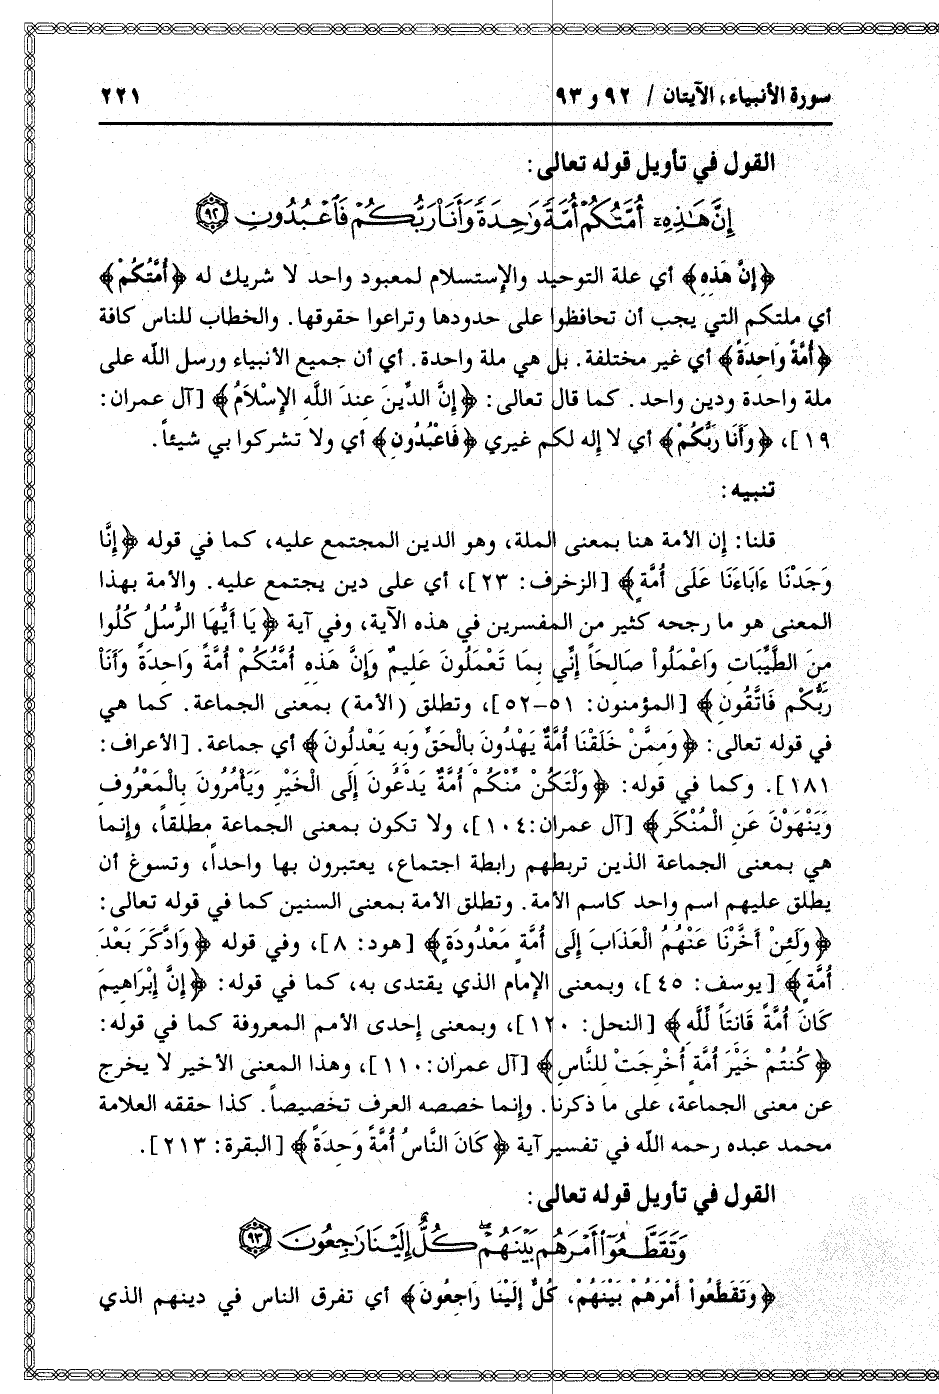 سورة الأنبياء، الآيتان / ٩٢ و ٩٣ ٢٢١
القول في تأويل قوله تعالى:
إِنَّ هَٰذِهِۦٓ أُمَّتُكُمْ أُمَّةً وَٰحِدَةً وَأَنَا۠ رَبُّكُمْ فَٱعْبُدُونِ ٩٢
﴿إِنَّ هَذِهِ﴾ أي علة التوحيد والإستسلام لمعبود واحد لا شريك له ﴿أُمَّتُكُمْ﴾
أي ملتكم التي يجب أن تحافظوا على حدودها وتراعوا حقوقها. والخطاب للناس كافة
﴿أُمَّةً وَاحِدَةً﴾ أي غير مختلفة. بل هي ملة واحدة. أي أن جميع الأنبياء ورسل اللّه على
ملة واحدة ودين واحد. كما قال تعالى: ﴿إِنَّ الدِّينَ عِندَ اللَّهِ الإِسْلاَمُ﴾ [آل عمران:
١٩]، ﴿وَأَنَا رَبُّكُمْ﴾ أي لا إله لكم غيري ﴿فَاعْبُدُونِ﴾ أي ولا تشركوا بي شيئاً.
تنبيه:
قلنا: إن الأمة هنا بمعنى الملة، وهو الدين المجتمع عليه، كما في قوله ﴿إِنَّا
وَجَدْنَا ءَابَاءَنَا عَلَى أُمَّةٍ﴾ [الزخرف: ٢٣]، أي على دين يجتمع عليه. والأمة بهذا
المعنى هو ما رجحه كثير من المفسرين في هذه الآية، وفي آية ﴿يَا أَيُّهَا الرُّسُلُ كُلُوا
مِنَ الطَّيِّبَاتِ وَاعْمَلُواْ صَالِحَاً إِنِّي بِمَا تَعْمَلُونَ عَلِيمٌ وَإِنَّ هَذِهِ أُمَّتُكُمْ أُمَّةً وَاحِدَةً وَأَنَاْ
رَبُّكُمْ فَاتَّقُونِ﴾ [المؤمنون: ٥١-٥٢]، وتطلق (الأمة) بمعنى الجماعة. كما هي
في قوله تعالى: ﴿وَمِمَّنْ خَلَقْنَا أُمَّةٌ يَهْدُونَ بِالْحَقِّ وَبِهِ يَعْدِلُونَ﴾ أي جماعة. [الأعراف:
١٨١]. وكما في قوله: ﴿وَلْتَكُنْ مِّنْكُمْ أُمَّةٌ يَدْعُونَ إِلَى الْخَيْرِ وَيَأْمُرُونَ بِالْمَعْرُوفِ
وَيَنْهَوْنَ عَنِ الْمُنْكَرِ﴾ [آل عمران:١٠٤]، ولا تكون بمعنى الجماعة مطلقاً، وإنما
هي بمعنى الجماعة الذين تربطهم رابطة اجتماع، يعتبرون بها واحداً، وتسوغ أن
يطلق عليهم اسم واحد كاسم الأمة. وتطلق الأمة بمعنى السنين كما في قوله تعالى:
﴿وَلَئِنْ أَخَّرْنَا عَنْهُمُ الْعَذَابَ إِلَى أُمَّةٍ مَعْدُودَةٍ﴾ [هود: ٨]، وفي قوله ﴿وَادَّكَرَ بَعْدَ
أُمَّةٍ﴾ [يوسف: ٤٥]، وبمعنى الإمام الذي يقتدى به، كما في قوله: ﴿إِنَّ إِبْرَاهِيمَ
كَانَ أُمَّةً قَانِتَاً لِّلَّهِ﴾ [النحل: ١٢٠]، وبمعنى إحدى الأمم المعروفة كما في قوله:
﴿كُنتُمْ خَيْرَ أُمَّةٍ أُخْرِجَتْ لِلنَّاسِ﴾ [آل عمران:١١٠]، وهذا المعنى الأخير لا يخرج
عن معنى الجماعة، على ما ذكرنا. وإنما خصصه العرف تخصيصاً. كذا حققه العلامة
محمد عبده رحمه اللّه في تفسير آية ﴿كَانَ النَّاسُ أُمَّةً وَحِدَةً﴾ [البقرة: ٢١٣].
القول في تأويل قوله تعالى:
وَتَقَطَّعُوٓا۟ أَمْرَهُم بَيْنَهُمْ ۖ كُلٌّ إِلَيْنَا رَٰجِعُونَ ٩٣
﴿وَتَقَطَّعُواْ أَمْرَهُمْ بَيْنَهُمْ، كُلٌّ إِلَيْنَا رَاجِعُونَ﴾ أي تفرق الناس في دينهم الذي